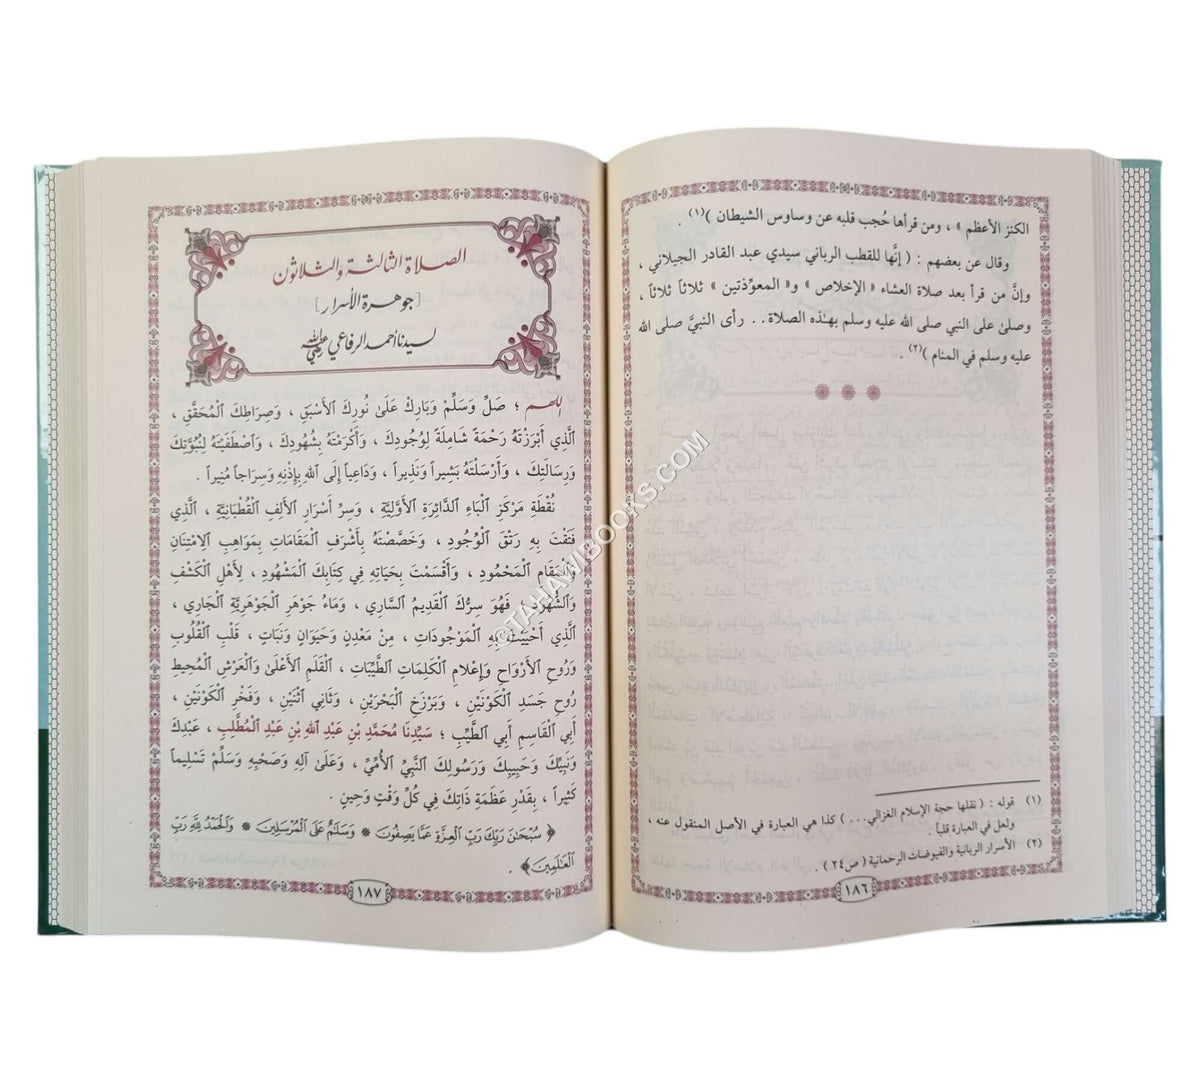 الكنز الأعظم » ، ومن قرأها حُجب قلبه عن وساوس الشيطان )(١) .
وقال عن بعضهم : ( إنَّها للقطب الرباني سيدي عبد القادر الجيلاني ،
وإنَّ من قرأ بعد صلاة العشاء « الإخلاص » و« المعوِّذتين » ثلاثاً ثلاثاً ،
وصلىٰ على النبي صلى الله عليه وسلم بهـٰذه الصلاة . . رأى النبيَّ صلى الله
عليه وسلم في المنام )(٢) .
(١) قوله : ( نقلها حجة الإسلام الغزالي . . . ) كذا هي العبارة في الأصل المنقول عنه ،
ولعل في العبارة قلباً .
(٢) الأسرار الربانية والفيوضات الرحمانية ( ص٢٤ ) .
١٨٦
الصلاة الثالثة والثلاثون
[ جوهرة الأسرار ]
لسيدنا أحمد الرفاعي رضي الله عنه
اللهم ؛ صَلِّ وَسَلِّمْ وَبَارِكْ عَلَىٰ نُورِكَ ٱلأَسْبَقِ ، وَصِرَاطِكَ ٱلْمُحَقَّقِ ،
ٱلَّذِي أَبْرَزْتَهُ رَحْمَةً شَامِلَةً لِوُجُودِكَ ، وَأَكْرَمْتَهُ بِشُهُودِكَ ، وَٱصْطَفَيْتَهُ لِنُبُوَّتِكَ
وَرِسَالَتِكَ ، وَأَرْسَلْتَهُ بَشِيراً وَنَذِيراً ، وَدَاعِياً إِلَى ٱللهِ بِإِذْنِهِ وَسِرَاجاً مُنِيراً .
نُقْطَةِ مَرْكَزِ ٱلْبَاءِ ٱلدَّائِرَةِ ٱلأَوَّلِيَّةِ ، وَسِرِّ أَسْرَارِ ٱلأَلِفِ ٱلْقُطْبَانِيَّةِ ، ٱلَّذِي
فَتَقْتَ بِهِ رَتْقَ ٱلْوُجُودِ ، وَخَصَّصْتَهُ بِأَشْرَفِ ٱلْمَقَامَاتِ بِمَوَاهِبِ ٱلِامْتِنَانِ
وَٱلْمَقَامِ ٱلْمَحْمُودِ ، وَأَقْسَمْتَ بِحَيَاتِهِ فِي كِتَابِكَ ٱلْمَشْهُودِ ، لِأَهْلِ ٱلْكَشْفِ
وَٱلشُّهُودِ ، فَهُوَ سِرُّكَ ٱلْقَدِيمُ ٱلسَّارِي ، وَمَاءُ جَوْهَرِ ٱلْجَوْهَرِيَّةِ ٱلْجَارِي ،
ٱلَّذِي أَحْيَيْتَ بِهِ ٱلْمَوْجُودَاتِ ، مِنْ مَعْدِنٍ وَحَيَوَانٍ وَنَبَاتٍ ، قَلْبِ ٱلْقُلُوبِ
وَرُوحِ ٱلأَرْوَاحِ وَإِعْلَامِ ٱلْكَلِمَاتِ ٱلطَّيِّبَاتِ ، ٱلْقَلَمِ ٱلأَعْلَىٰ وَٱلْعَرْشِ ٱلْمُحِيطِ
رُوحِ جَسَدِ ٱلْكَوْنَيْنِ ، وَبَرْزَخِ ٱلْبَحْرَيْنِ ، وَثَانِي ٱثْنَيْنِ ، وَفَخْرِ ٱلْكَوْنَيْنِ ،
أَبِي ٱلْقَاسِمِ أَبِي ٱلطَّيِّبِ ؛ سَيِّدِنَا مُحَمَّدِ بْنِ عَبْدِ ٱللهِ بْنِ عَبْدِ ٱلْمُطَّلِبِ ، عَبْدِكَ
وَنَبِيِّكَ وَحَبِيبِكَ وَرَسُولِكَ ٱلنَّبِيِّ ٱلأُمِّيِّ ، وَعَلَىٰ آلِهِ وَصَحْبِهِ وَسَلِّمْ تَسْلِيماً
كَثِيراً ، بِقَدْرِ عَظَمَةِ ذَاتِكَ فِي كُلِّ وَقْتٍ وَحِينٍ .
﴿ سُبْحَٰنَ رَبِّكَ رَبِّ ٱلْعِزَّةِ عَمَّا يَصِفُونَ * وَسَلَٰمٌ عَلَى ٱلْمُرْسَلِينَ * وَٱلْحَمْدُ لِلَّهِ رَبِّ
ٱلْعَٰلَمِينَ ﴾ .
١٨٧
©TAHAWIBOOKS.COM